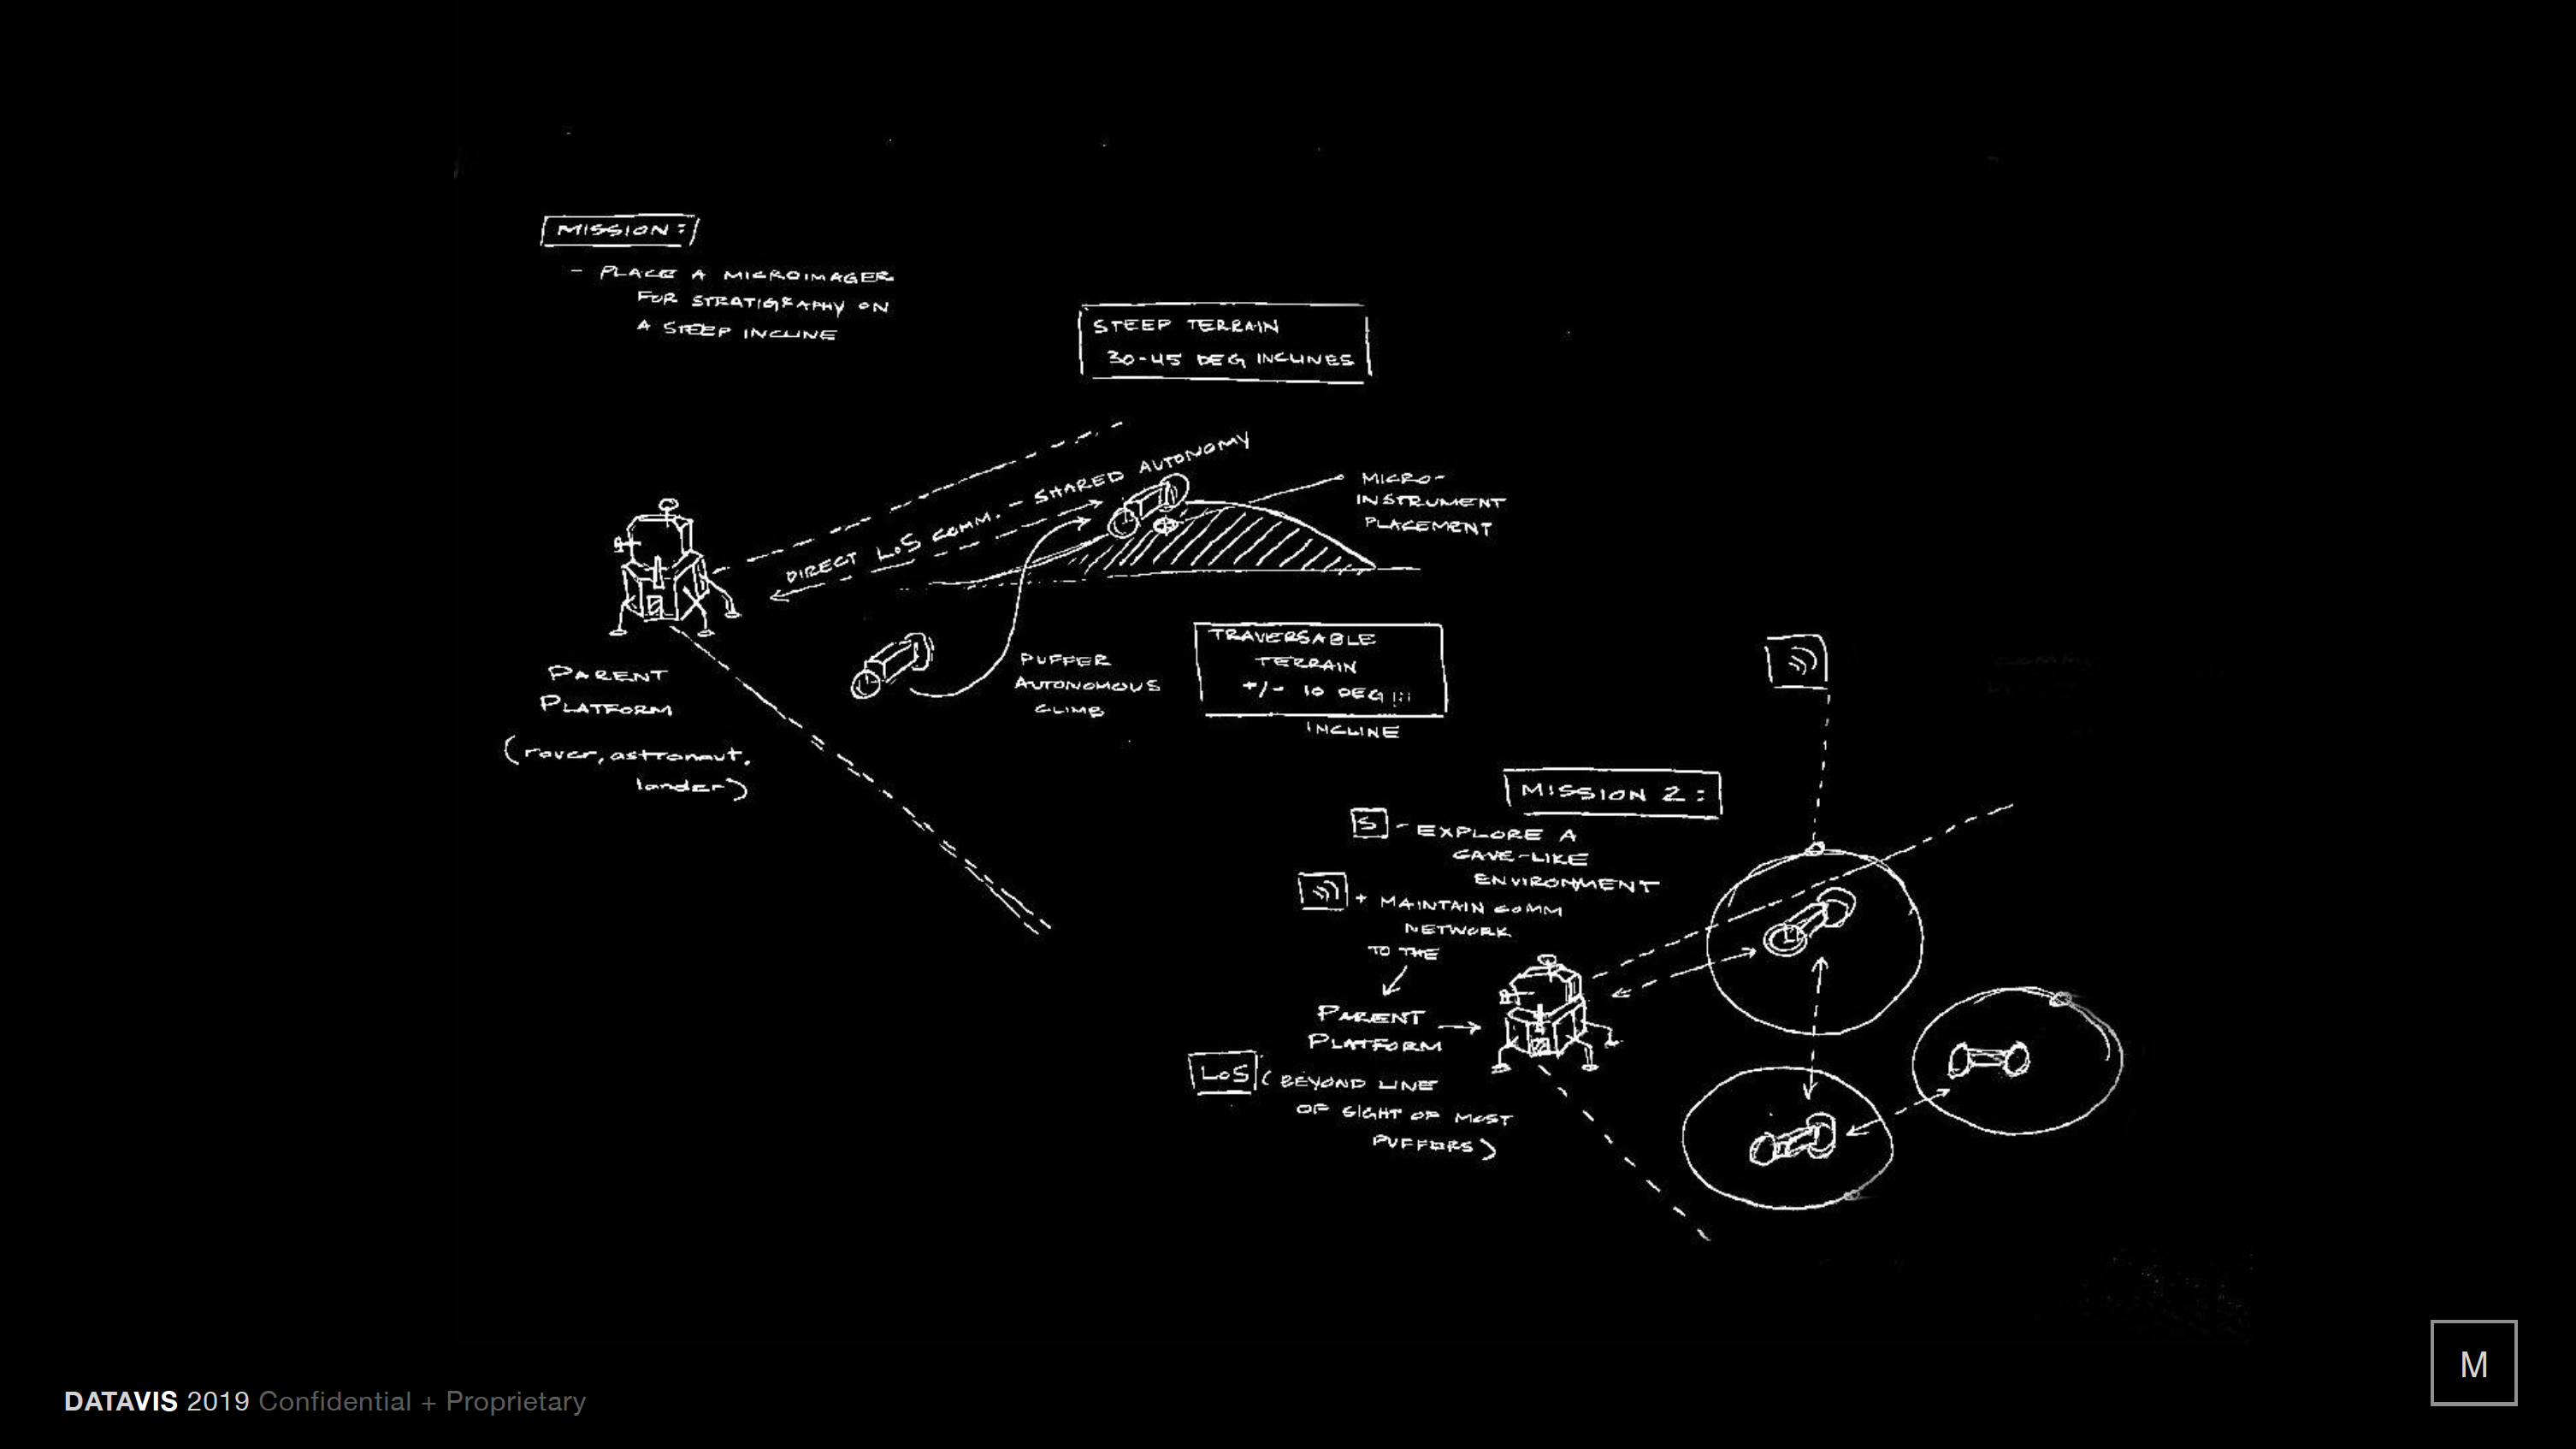 MISSION:
- PLACE A MICROIMAGER
FOR STRATIGRAPHY ON
A STEEP INCLINE
STEEP TERRAIN
30-45 DEG INCLINES
DIRECT LOS COMM. - SHARED AUTONOMY
MICRO-
INSTRUMENT
PLACEMENT
PARENT
PLATFORM
(rover, astronaut,
lander)
PUFFER
AUTONOMOUS
CLIMB
TRAVERSABLE
TERRAIN
+/- 10 DEG !!!
INCLINE
MISSION 2:
S - EXPLORE A
CAVE-LIKE
ENVIRONMENT
+ MAINTAIN COMM
NETWORK
TO THE
PARENT
PLATFORM
LOS (BEYOND LINE
OF SIGHT OF MOST
PUFFERS)
DATAVIS 2019 Confidential + Proprietary
M